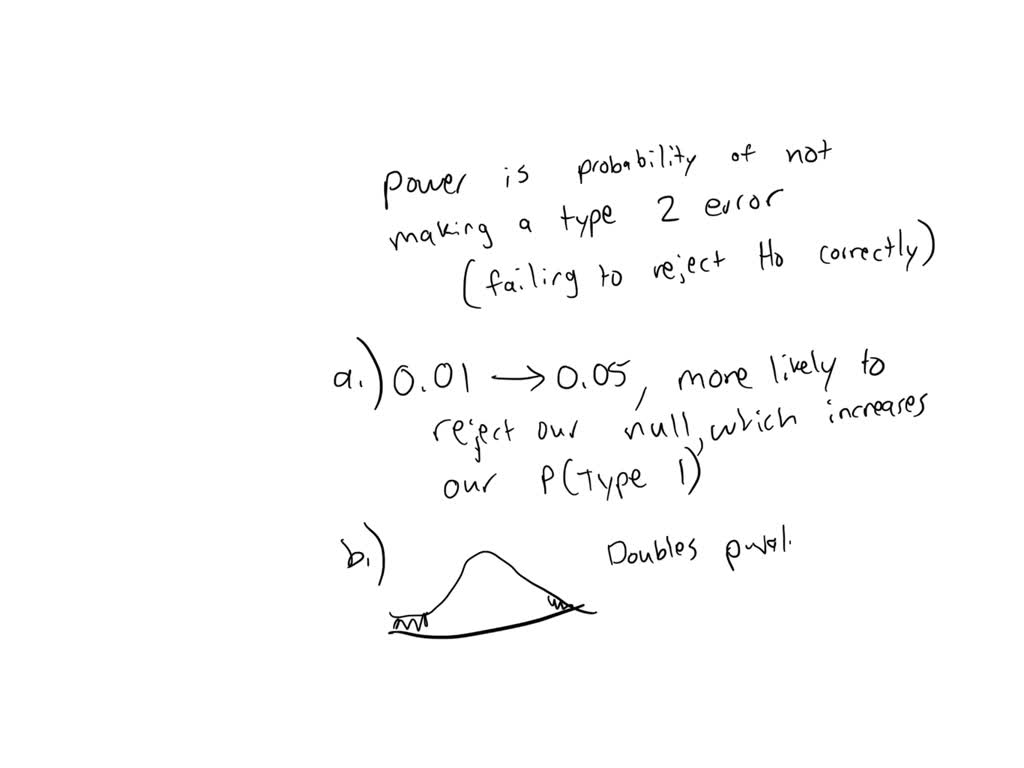 power is probability of not
making a type 2 error
(failing to reject Ho correctly)
a.) 0.01 → 0.05, more likely to
reject our null, which increases
our P(Type 1)
b.) Doubles pval.